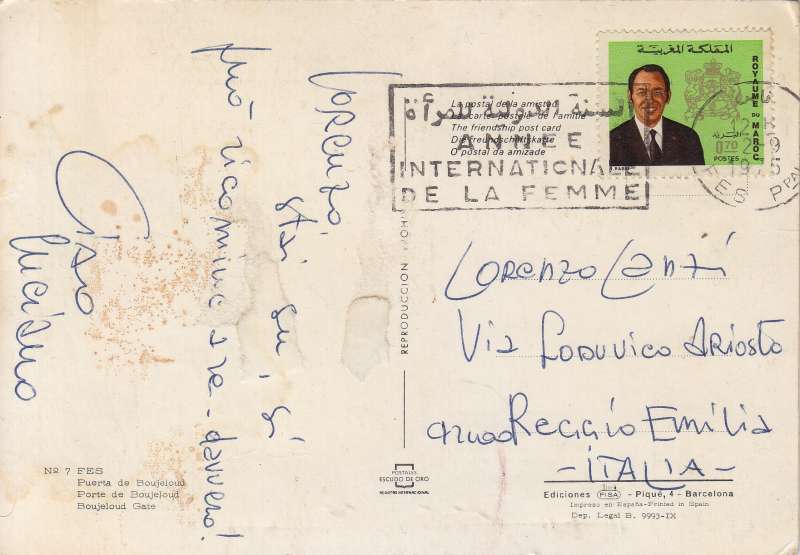 Lorenzo,
stai su, si
può ricominciare - davvero!
Ciao
Luciano
Nº 7 FES
Puerta de Boujeloud
Porte de Boujeloud
Boujeloud Gate
La postal de la amistad
La carte postale de l'amitié
The friendship post card
Die Freundschaftskarte
O postal da amizade
السنة الدولية للمرأة
ANNEE
INTERNATIONALE
DE LA FEMME
المملكة المغربية
ROYAUME DU MAROC
البريد
0,70
POSTES
REPRODUCCION
PORTALES
ESCUDO DE ORO
REGISTRO INTERNACIONAL
Lorenzo
Via Lodovico Ariosto
42100 Reggio Emilia
- ITALIA -
Ediciones FISA - Piqué, 4 - Barcelona
Impreso en España-Printed in Spain
Dep. Legal B. 9993-IX